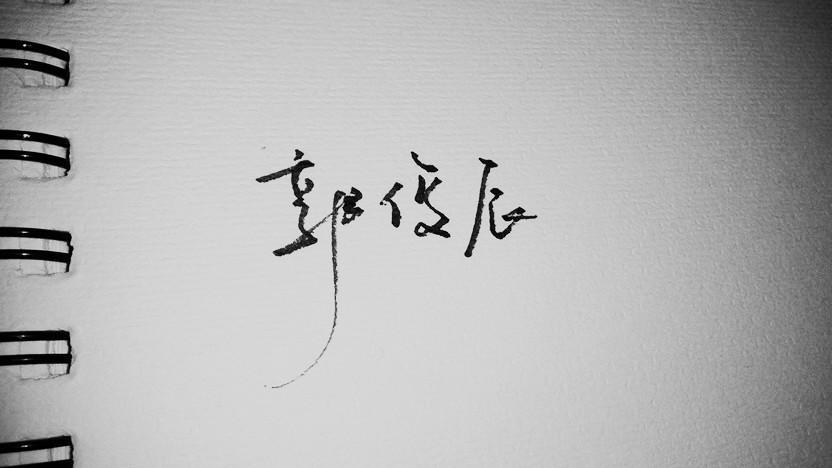 郭俊辰